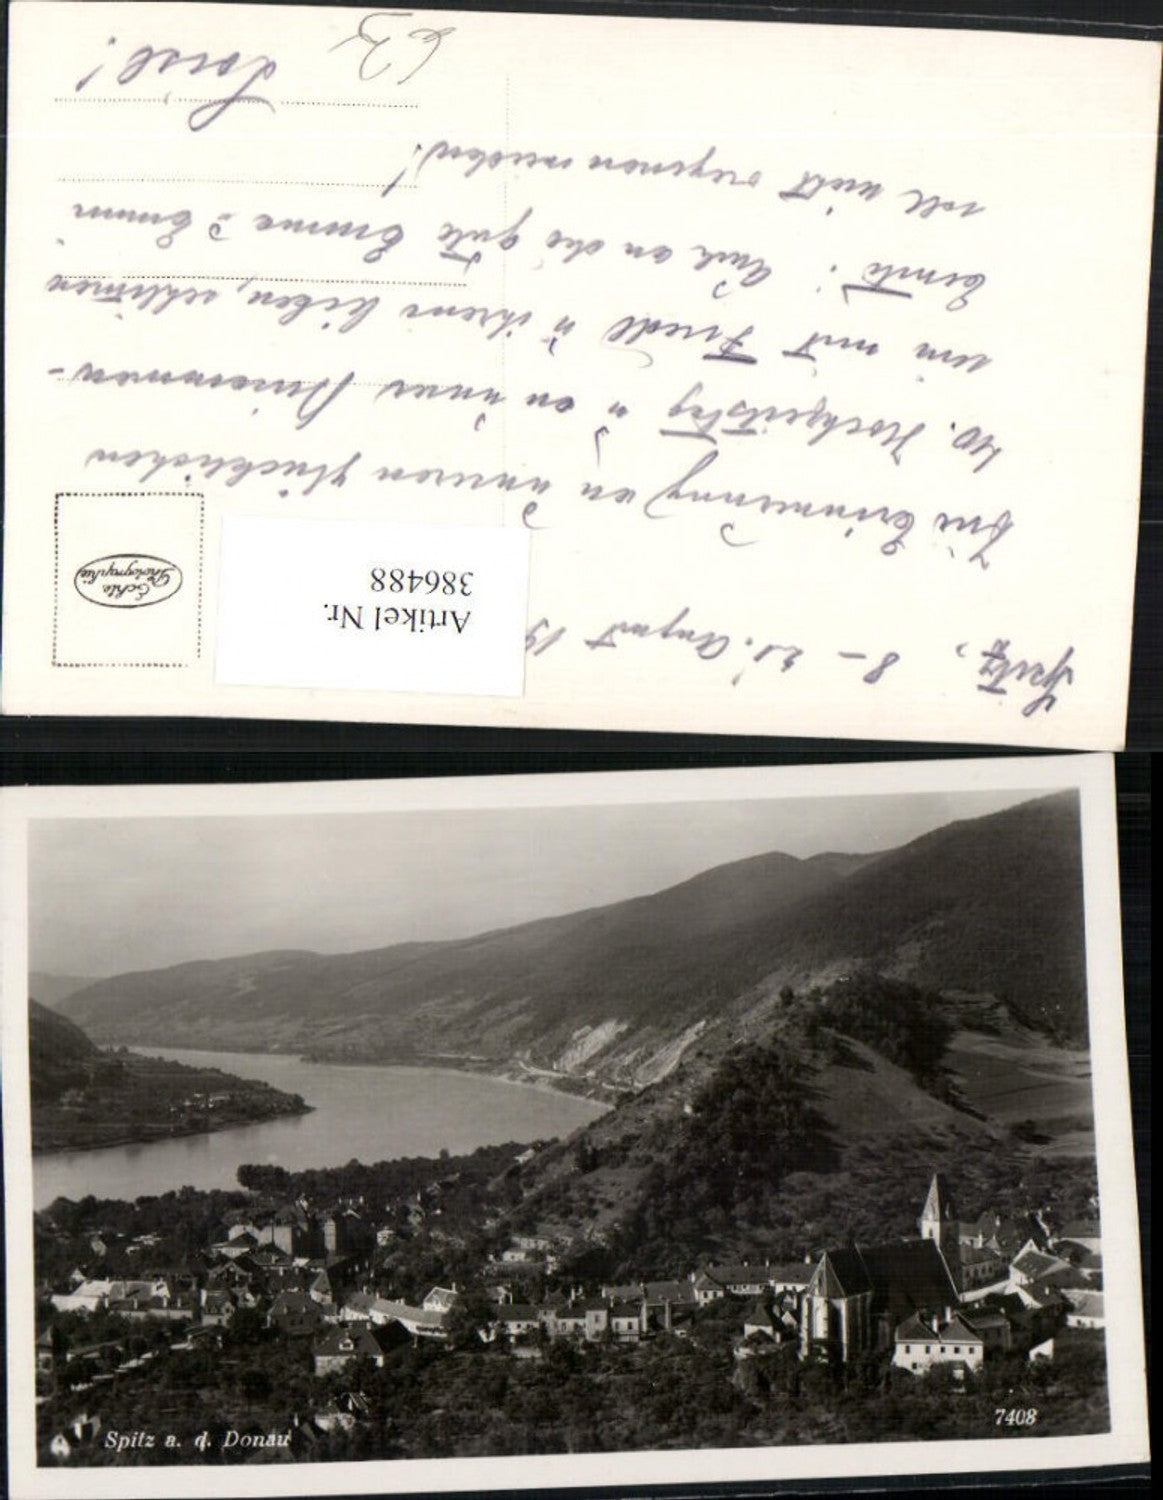 Spitz, 8 – 21. August 19
Artikel Nr.
386488
Echte
Photographie
Zur Erinnerung an unseren glücklichen
40. Hochzeitstag u an unser Beisammen-
sein mit Friedl u ihrem lieben, schlimen
Auch an die gute Emma = Emmi
soll nicht vergessen werden!
Spitz a. d. Donau
7408